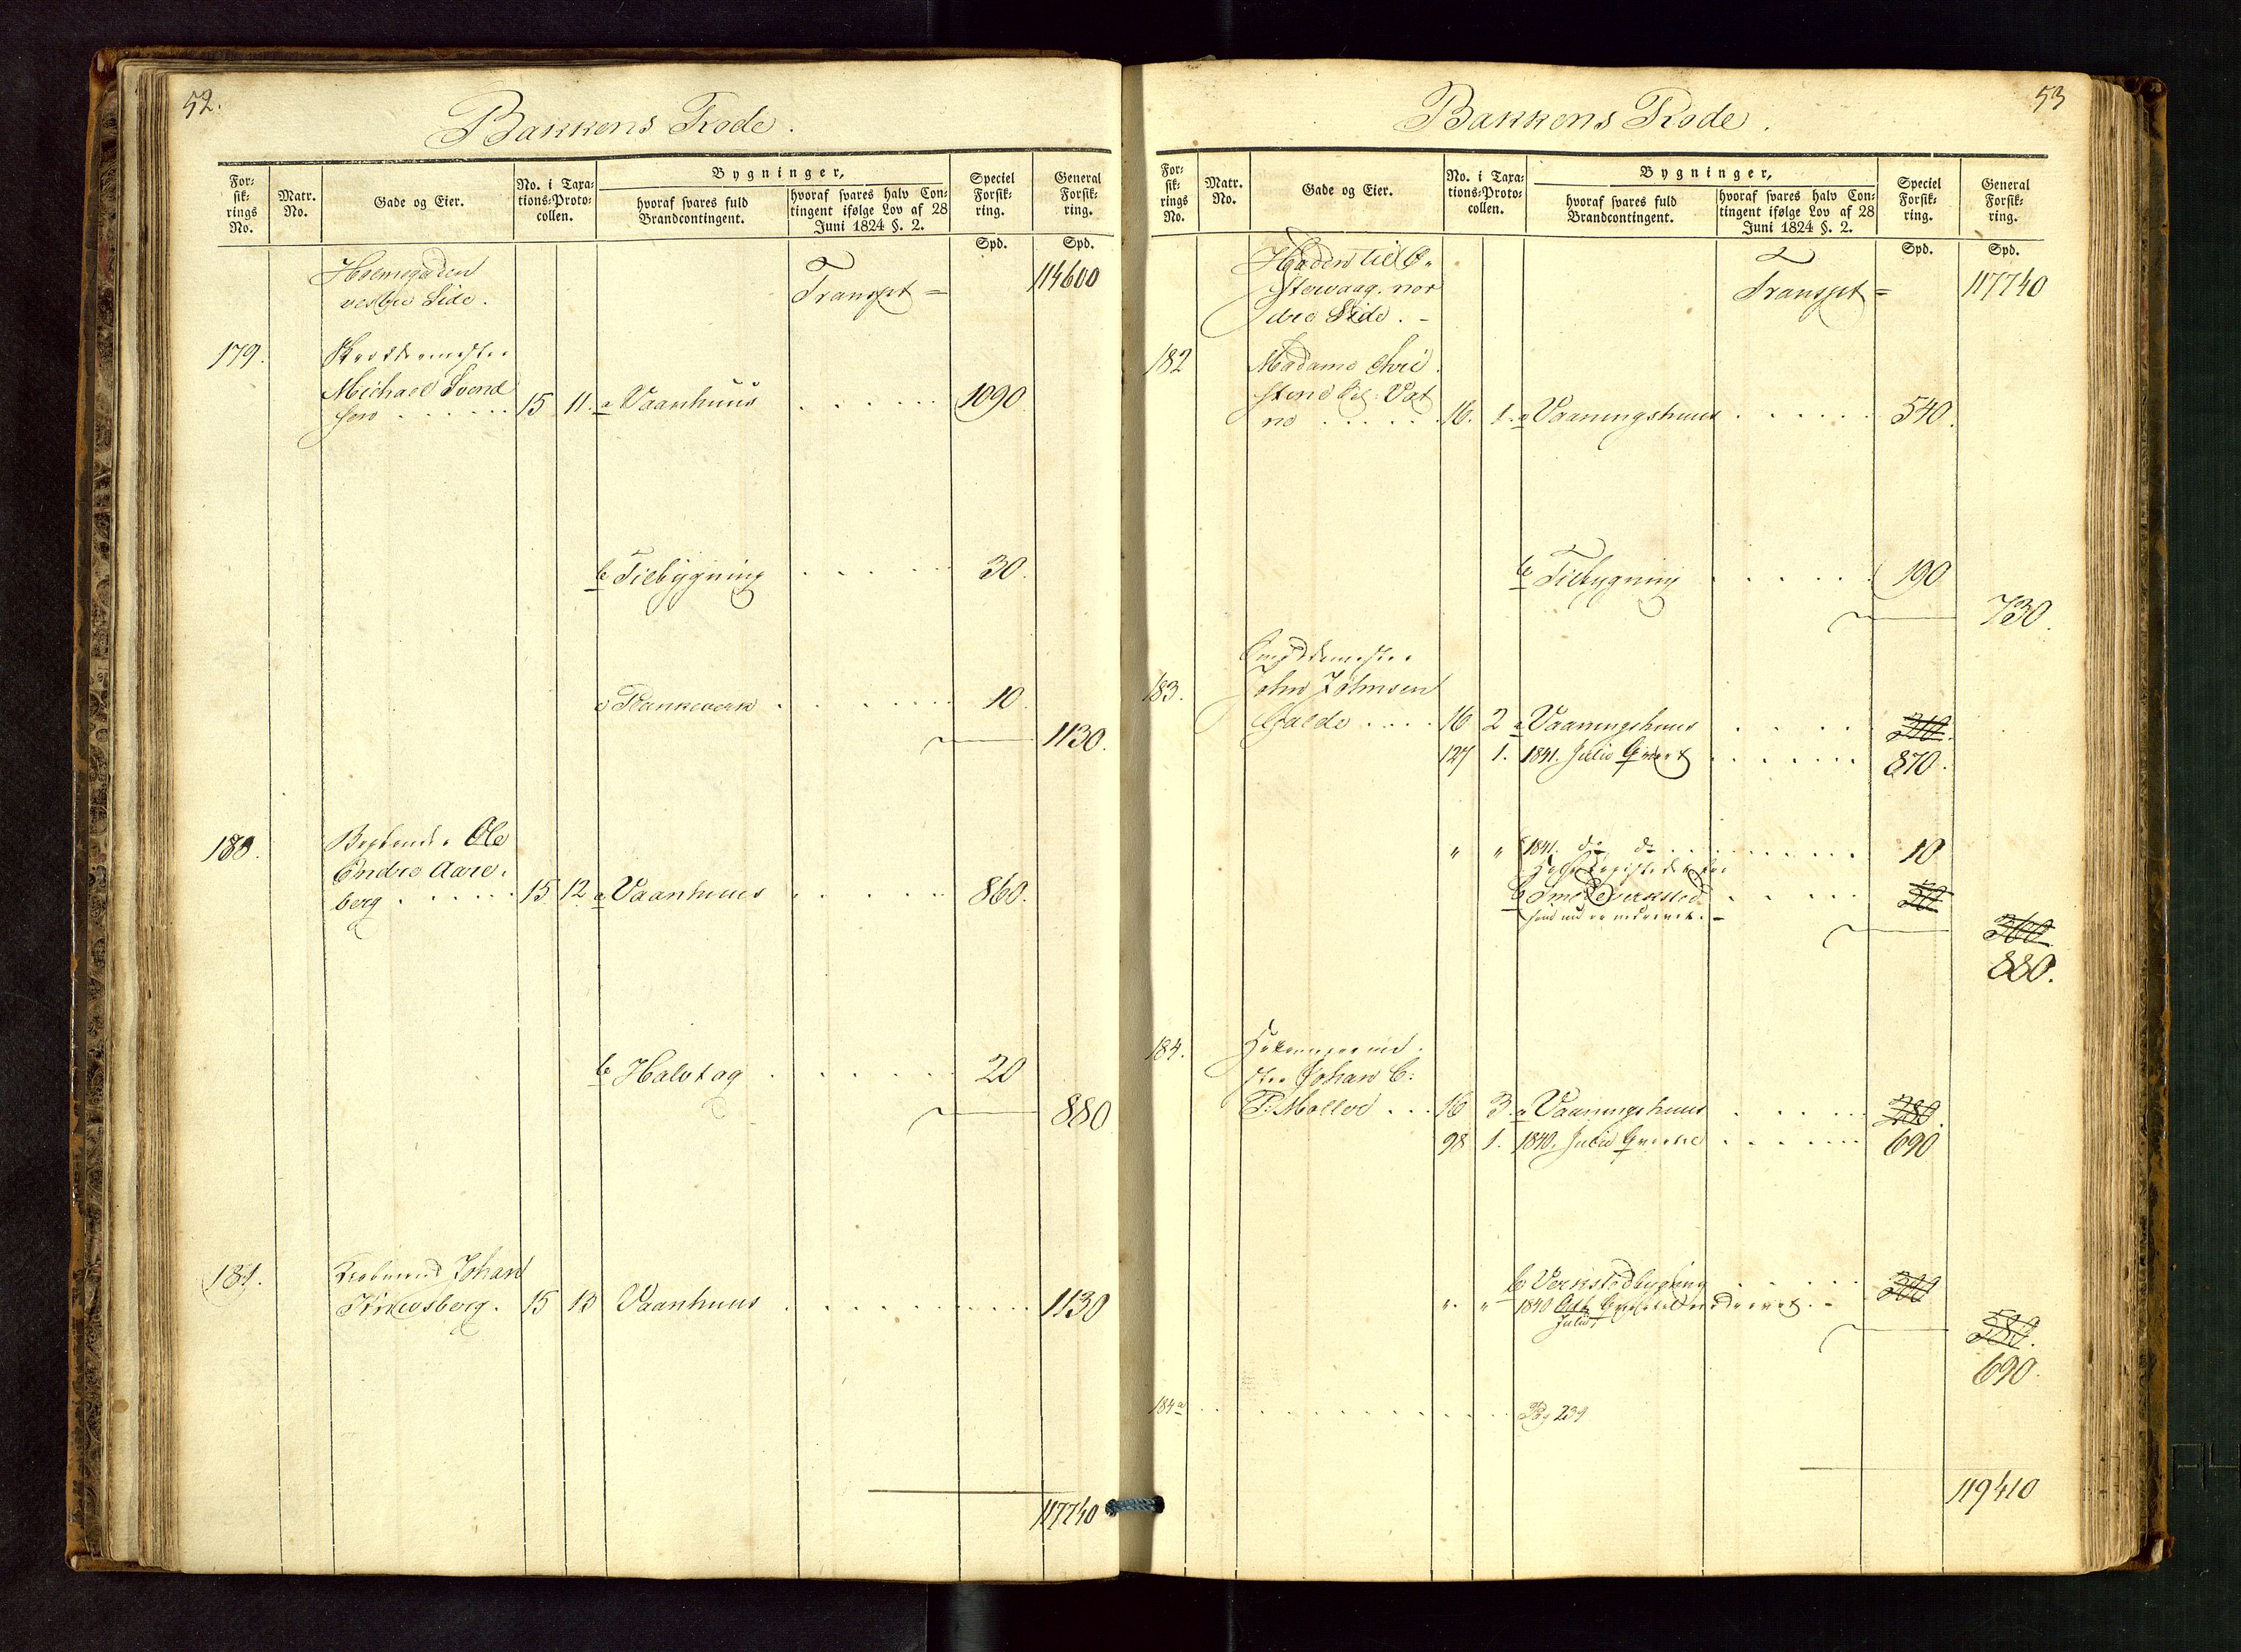 52.
Bakkens Rode.
For=
sik=
rings
No.
Matr.
No.
Gade og Eier.
No. i Taxa=
tions=Proto=
collen.
Bygninger,
hvoraf svares fuld
Brandcontingent.
hvoraf svares halv Con=
tingent ifølge Lov af 28
Juni 1824 §. 2.
Speciel
Forsik=
ring.
General
Forsik=
ring.
Spd. Spd.
Holmegaden
vestre Side.
Transpt = 114600
179. 
Michael Svend
sen . . . . . . 15 11. a Vaanhuus . . . . . 1090.
b Tilbygning . . . . . 30.
c Plankeverk . . . . . . 10.
1130.
180. Ole
Endre Aare
berg . . . . . . 15 12. a Vaanhuus . . . . . 860.
b Halvtag . . . . . . 20
880
181. Johan
15 13 Vaanhuus . . . . . . . . 1130
117740
53
Bakkens Rode.
For=
sik=
rings
No.
Matr.
No.
Gade og Eier.
No. i Taxa=
tions=Proto=
collen.
Bygninger,
hvoraf svares fuld
Brandcontingent.
hvoraf svares halv Con=
tingent ifølge Lov af 28
Juni 1824 §. 2.
Speciel
Forsik=
ring.
General
Forsik=
ring.
Spd. Spd.
Gaden til Ø=
stervaag. nor
dre Side. -
Transpt = 117740
182 Madame Chri
stine Vat
ne . . . . . 16. 1. a Vaaningshuus . . . . . 540.
b Tilbygning . . . . . 190
730.
183. John Johnsen
Galde . . . . 16 2 a Vaaningshuus . . . . 310.
127 1. 1841. Julio . . . . . . 870.
" " 1841. do do . . . . . . . . 10
b . . . . 50
360
880.
184.
Johan C:
P: Møller . . . 16 3. a Vaaningshuus . . . . . 280.
98 1. 1840. Julio . . . . . . 690
b Verkstedbygning . . . . . 300
". " 1840
Julio
580.
690.
184 a . . . . . . . . . . . . . Pag 239
119410